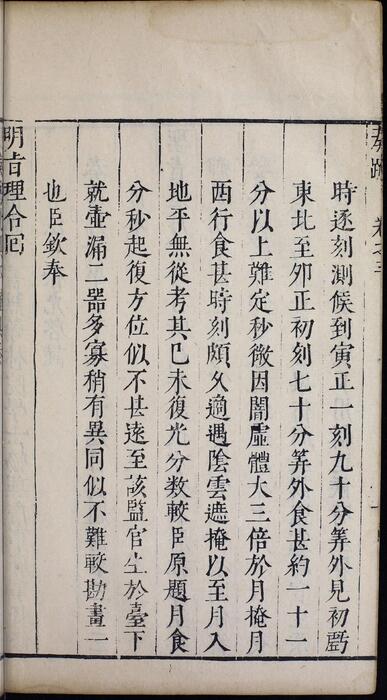 時逐刻測候到寅正一刻九十分筭外見初虧
東北至夘正初刻七十分筭外食甚約一十一
分以上難定秒微因闇虛體大三倍於月掩月
西行食甚時刻頗久適遇陰雲遮掩以至月入
地平無從考其已未復光分數較臣原題月食
分秒起復方位似不甚遠至該監官生於臺下
就壺漏二器多寡稍有異同似不難較勘畫一
也臣欽奉
明旨理合